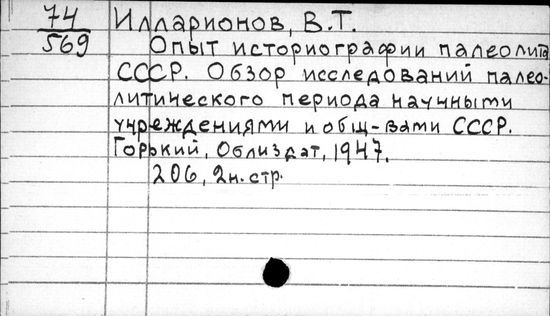 74
569
Илларионов, В.Т.
Опыт историографии палеолита
СССР. Обзор исследований палео-
литического периода научными
учреждениями и общ-вами СССР.
Горький, Облиздат, 1947.
206, 2н. стр.